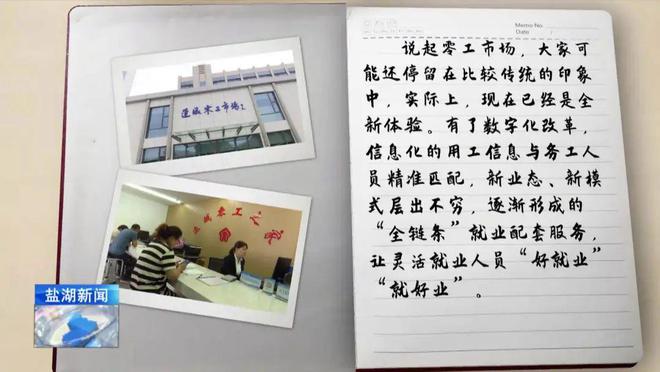 运城零工市场
零工之
盐湖新闻
Memo No.
Date
说起零工市场，大家可
能还停留在比较传统的印象
中，实际上，现在已经是全
新体验。有了数字化改革，
信息化的用工信息与务工人
员精准匹配，新业态、新模
式层出不穷，逐渐形成的
“全链条”就业配套服务，
让灵活就业人员“好就业”
“就好业”。